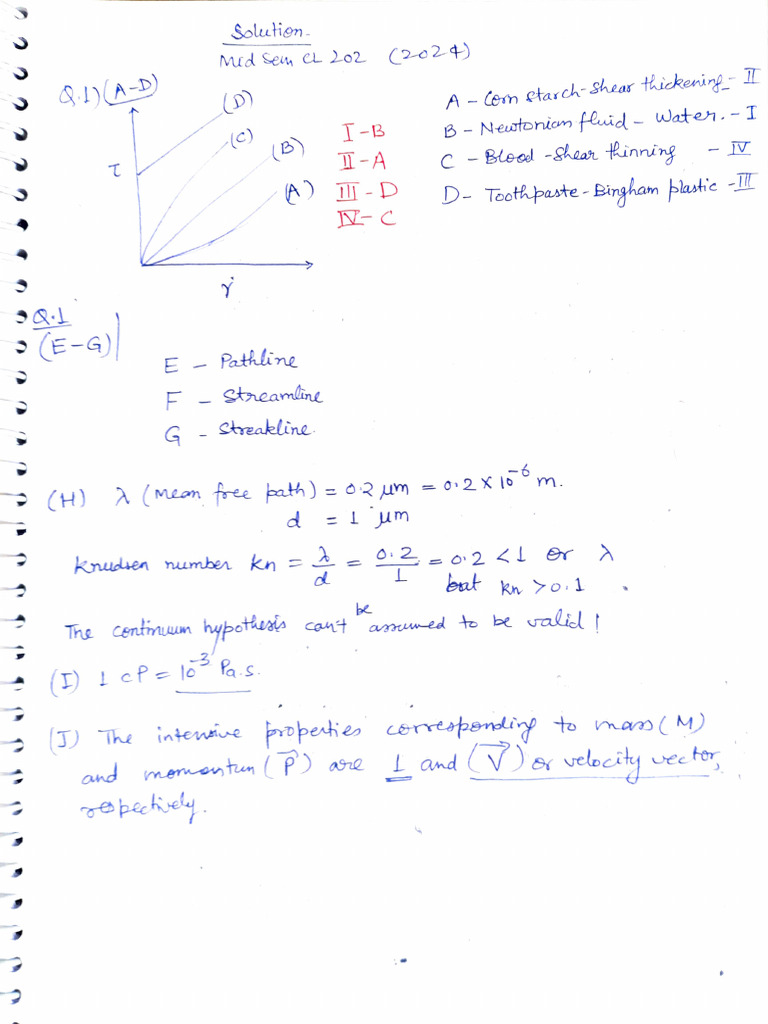 Solution.
Mid Sem CL 202 (2024)
Q.1) (A-D)
τ
(D)
(C)
(B)
(A)
γ̇
I - B
II - A
III - D
IV - C
A - Corn starch - Shear thickening - II
B - Newtonian fluid - Water. - I
C - Blood - Shear thinning - IV
D - Toothpaste - Bingham plastic - III
Q.1
(E-G)
E - Pathline
F - Streamline
G - Streakline.
(H) λ (Mean free path) = 0.2 μm = 0.2 × 10⁻⁶ m.
d = 1 μm
Knudsen number kn = λ/d = 0.2/1 = 0.2 < 1 or λ
but kn > 0.1
The continuum hypothesis can't be assumed to be valid!
(I) 1 cP = 10⁻³ Pa.s.
(J) The intensive properties corresponding to mass (M)
and momentum (P⃗) are 1 and (V⃗) or velocity vector,
respectively.